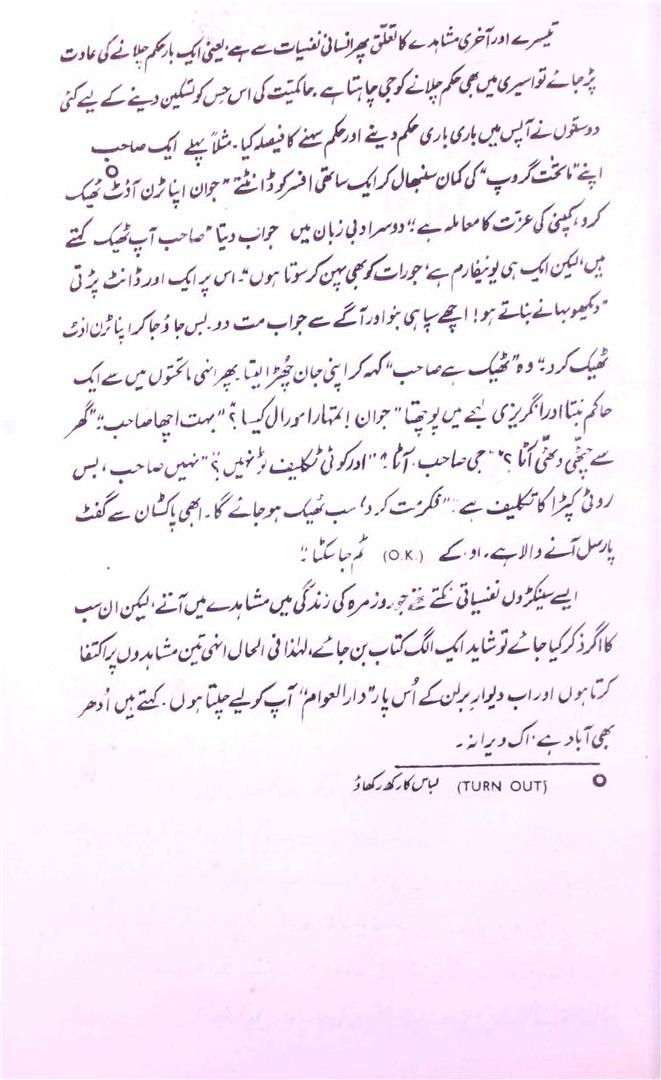 تیسرے اور آخری مشاہدے کا تعلّق پھر انسانی نفسیات سے ہے یعنی ایک بار حکم چلانے کی عادت
پڑ جائے تو اسیری میں بھی حکم چلانے کو جی چاہتا ہے۔ حاکمیّت کی اس حِس کو تسکین دینے کے لیے کئی
دوستوں نے آپس میں باری باری حکم دینے اور حکم سہنے کا فیصلہ کیا۔ مثلاً پہلے ایک صاحب
اپنے "ماتحت گروپ" کی کمان سنبھال کر ایک ساتھی افسر کو ڈانٹتے "جوان اپنا ٹرن آؤٹ ٹھیک
کرو، کمپنی کی عزّت کا معاملہ ہے"۔ دوسرا دبی زبان میں جواب دیتا "صاحب آپ ٹھیک کہتے
ہیں، لیکن ایک ہی یونیفارم ہے، جو رات کو بھی پہن کر سوتا ہوں"۔ اس پر ایک اور ڈانٹ پڑتی
"دیکھو بہانے بناتے ہو! اچھے سپاہی بنو اور آگے سے جواب مت دو۔ بس جاؤ جا کر اپنا ٹرن آؤٹ
ٹھیک کرو"۔ وہ "ٹھیک ہے صاحب" کہہ کر اپنی جان چُھڑا لیتا۔ پھر انہی ماتحتوں میں سے ایک
حاکم بنتا اور انگریزی لہجے میں پوچھتا "جوان! ٹمہارا مورال کیسا؟" "بہت اچھا صاحب"۔ "گھر
سے چٹھی وٹھی آٹا؟" "جی صاحب، آٹا"۔ "اور کوئی ٹکلیف ٹو نہیں؟" "نہیں صاحب، بس
روٹی کپڑا کا تکلیف ہے"۔ "فکر مت کرو، سب ٹھیک ہو جائے گا۔ ابھی پاکٹان سے گفٹ
پارسل آنے والا ہے۔ او۔ کے (O.K.) ٹم جا سکٹا"۔
ایسے سینکڑوں نفسیاتی نکتے تھے جو روزمرہ کی زندگی میں مشاہدے میں آتے، لیکن ان سب
کا اگر ذکر کیا جائے تو شاید ایک الگ کتاب بن جائے، لہٰذا فی الحال انہی تین مشاہدوں پر اکتفا
کرتا ہوں اور اب دیوارِ برلن کے اُس پار "دار العوام" آپ کو لیے چلتا ہوں۔ کہتے ہیں اُدھر
بھی آباد ہے اک ویرانہ۔
o (TURN OUT) لباس کا رکھ رکھاؤ